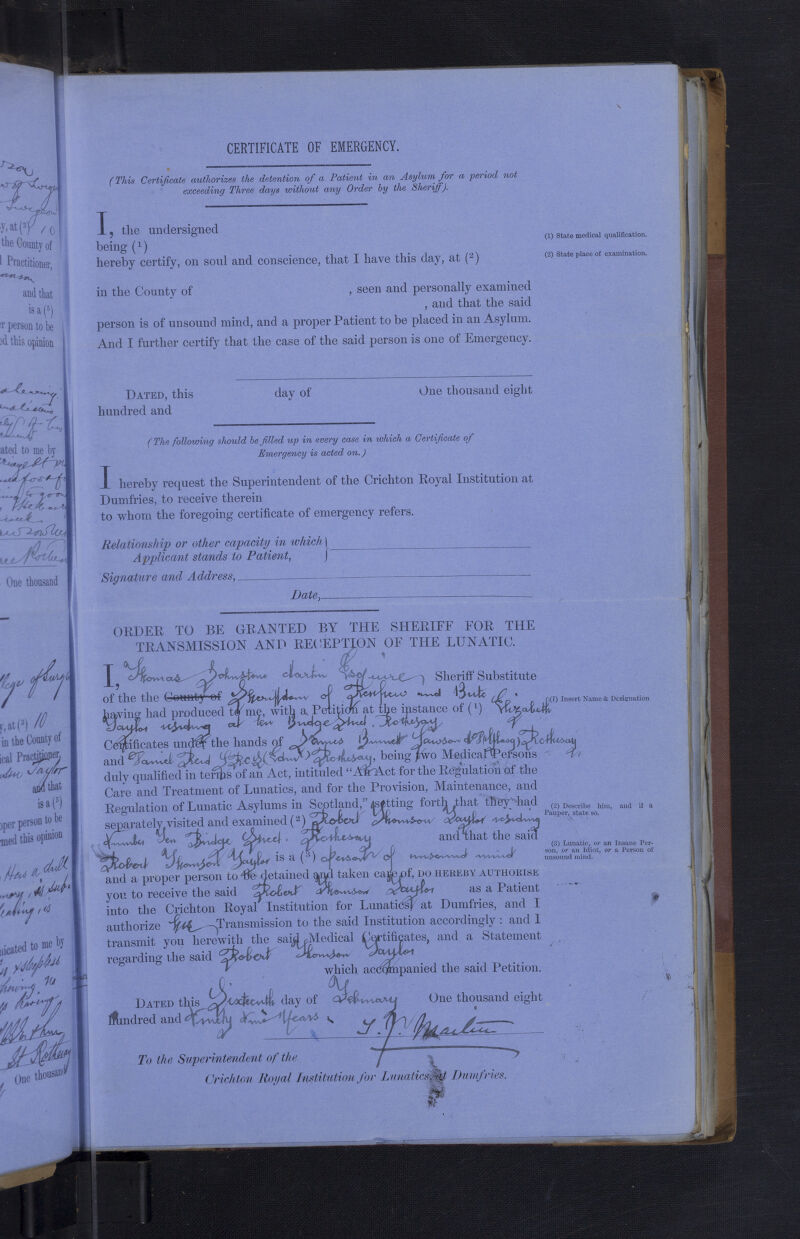 CERTIFICATE OF EMERGENCY.
(This Certificate authorizes the detention of a Patient in an Asylum for a period not
exceeding Three days without any Order by the Sheriff).
I, the undersigned
being (1)
hereby certify, on soul and conscience, that I have this day, at (2)
in the County of , seen and personally examined
, and that the said
person is of unsound mind, and a proper Patient to be placed in an Asylum.
And I further certify that the case of the said person is one of Emergency.
DATED, this day of One thousand eight
hundred and
(The following should be filled up in every case in which a Certificate of
Emergency is acted on.)
I hereby request the Superintendent of the Crichton Royal Institution at
Dumfries, to receive therein
to whom the foregoing certificate of emergency refers.
Relationship or other capacity in which }
Applicant stands to Patient,
Signature and Address,
Date,
(1) State medical qualification.
(2) State place of examination.
ORDER TO BE GRANTED BY THE SHERIFF FOR THE
TRANSMISSION AND RECEPTION OF THE LUNATIC.
I, Thomas Johnstone Martin Esquire, Sheriff Substitute
of the the County of Sheriffdom of Renfrew and Bute
having had produced to me, with a Petition at the instance of (1) Elizabeth
Taylor residing at ten Bridge Street, Rothesay
Certificates under the hands of James Burnett Lawson Rothesay
and Daniel Reid Rothesay, being two Medical Persons
duly qualified in terms of an Act, intituled "An Act for the Regulation of the
Care and Treatment of Lunatics, and for the Provision, Maintenance, and
Regulation of Lunatic Asylums in Scotland," setting forth that they had
separately visited and examined (2) Robert Thomson Taylor residing
number Ten Bridge Street, Rothesay and that the said
Robert Thomson Taylor is a (3) person of unsound mind
and a proper person to be detained and taken care of, DO HEREBY AUTHORISE
you to receive the said Robert Thomson Taylor as a Patient
into the Crichton Royal Institution for Lunatics at Dumfries, and I
authorize his Transmission to the said Institution accordingly : and I
transmit you herewith the said Medical Certificates, and a Statement
regarding the said Robert Thomson Taylor
which accompanied the said Petition.
DATED this Sixteenth day of February One thousand eight
Hundred and Ninety nine Years
T. J. Martin
To the Superintendent of the
Crichton Royal Institution for Lunatics, at Dumfries.
(1) Insert Name & Designation
(2) Describe him, and if a
Pauper, state so.
(3) Lunatic, or an Insane Per-
son, or an Idiot, or a Person of
unsound mind.
y, at (2) 10
the County of
l Practitioner,
and that
is a (3)
r person to be
ed this opinion
ated to me by
One thousand
y, at (2) 10
in the County of
ical Practitioner,
Taylor
and that
is a (3)
oper person to be
rmed this opinion
nicated to me by
One thousand